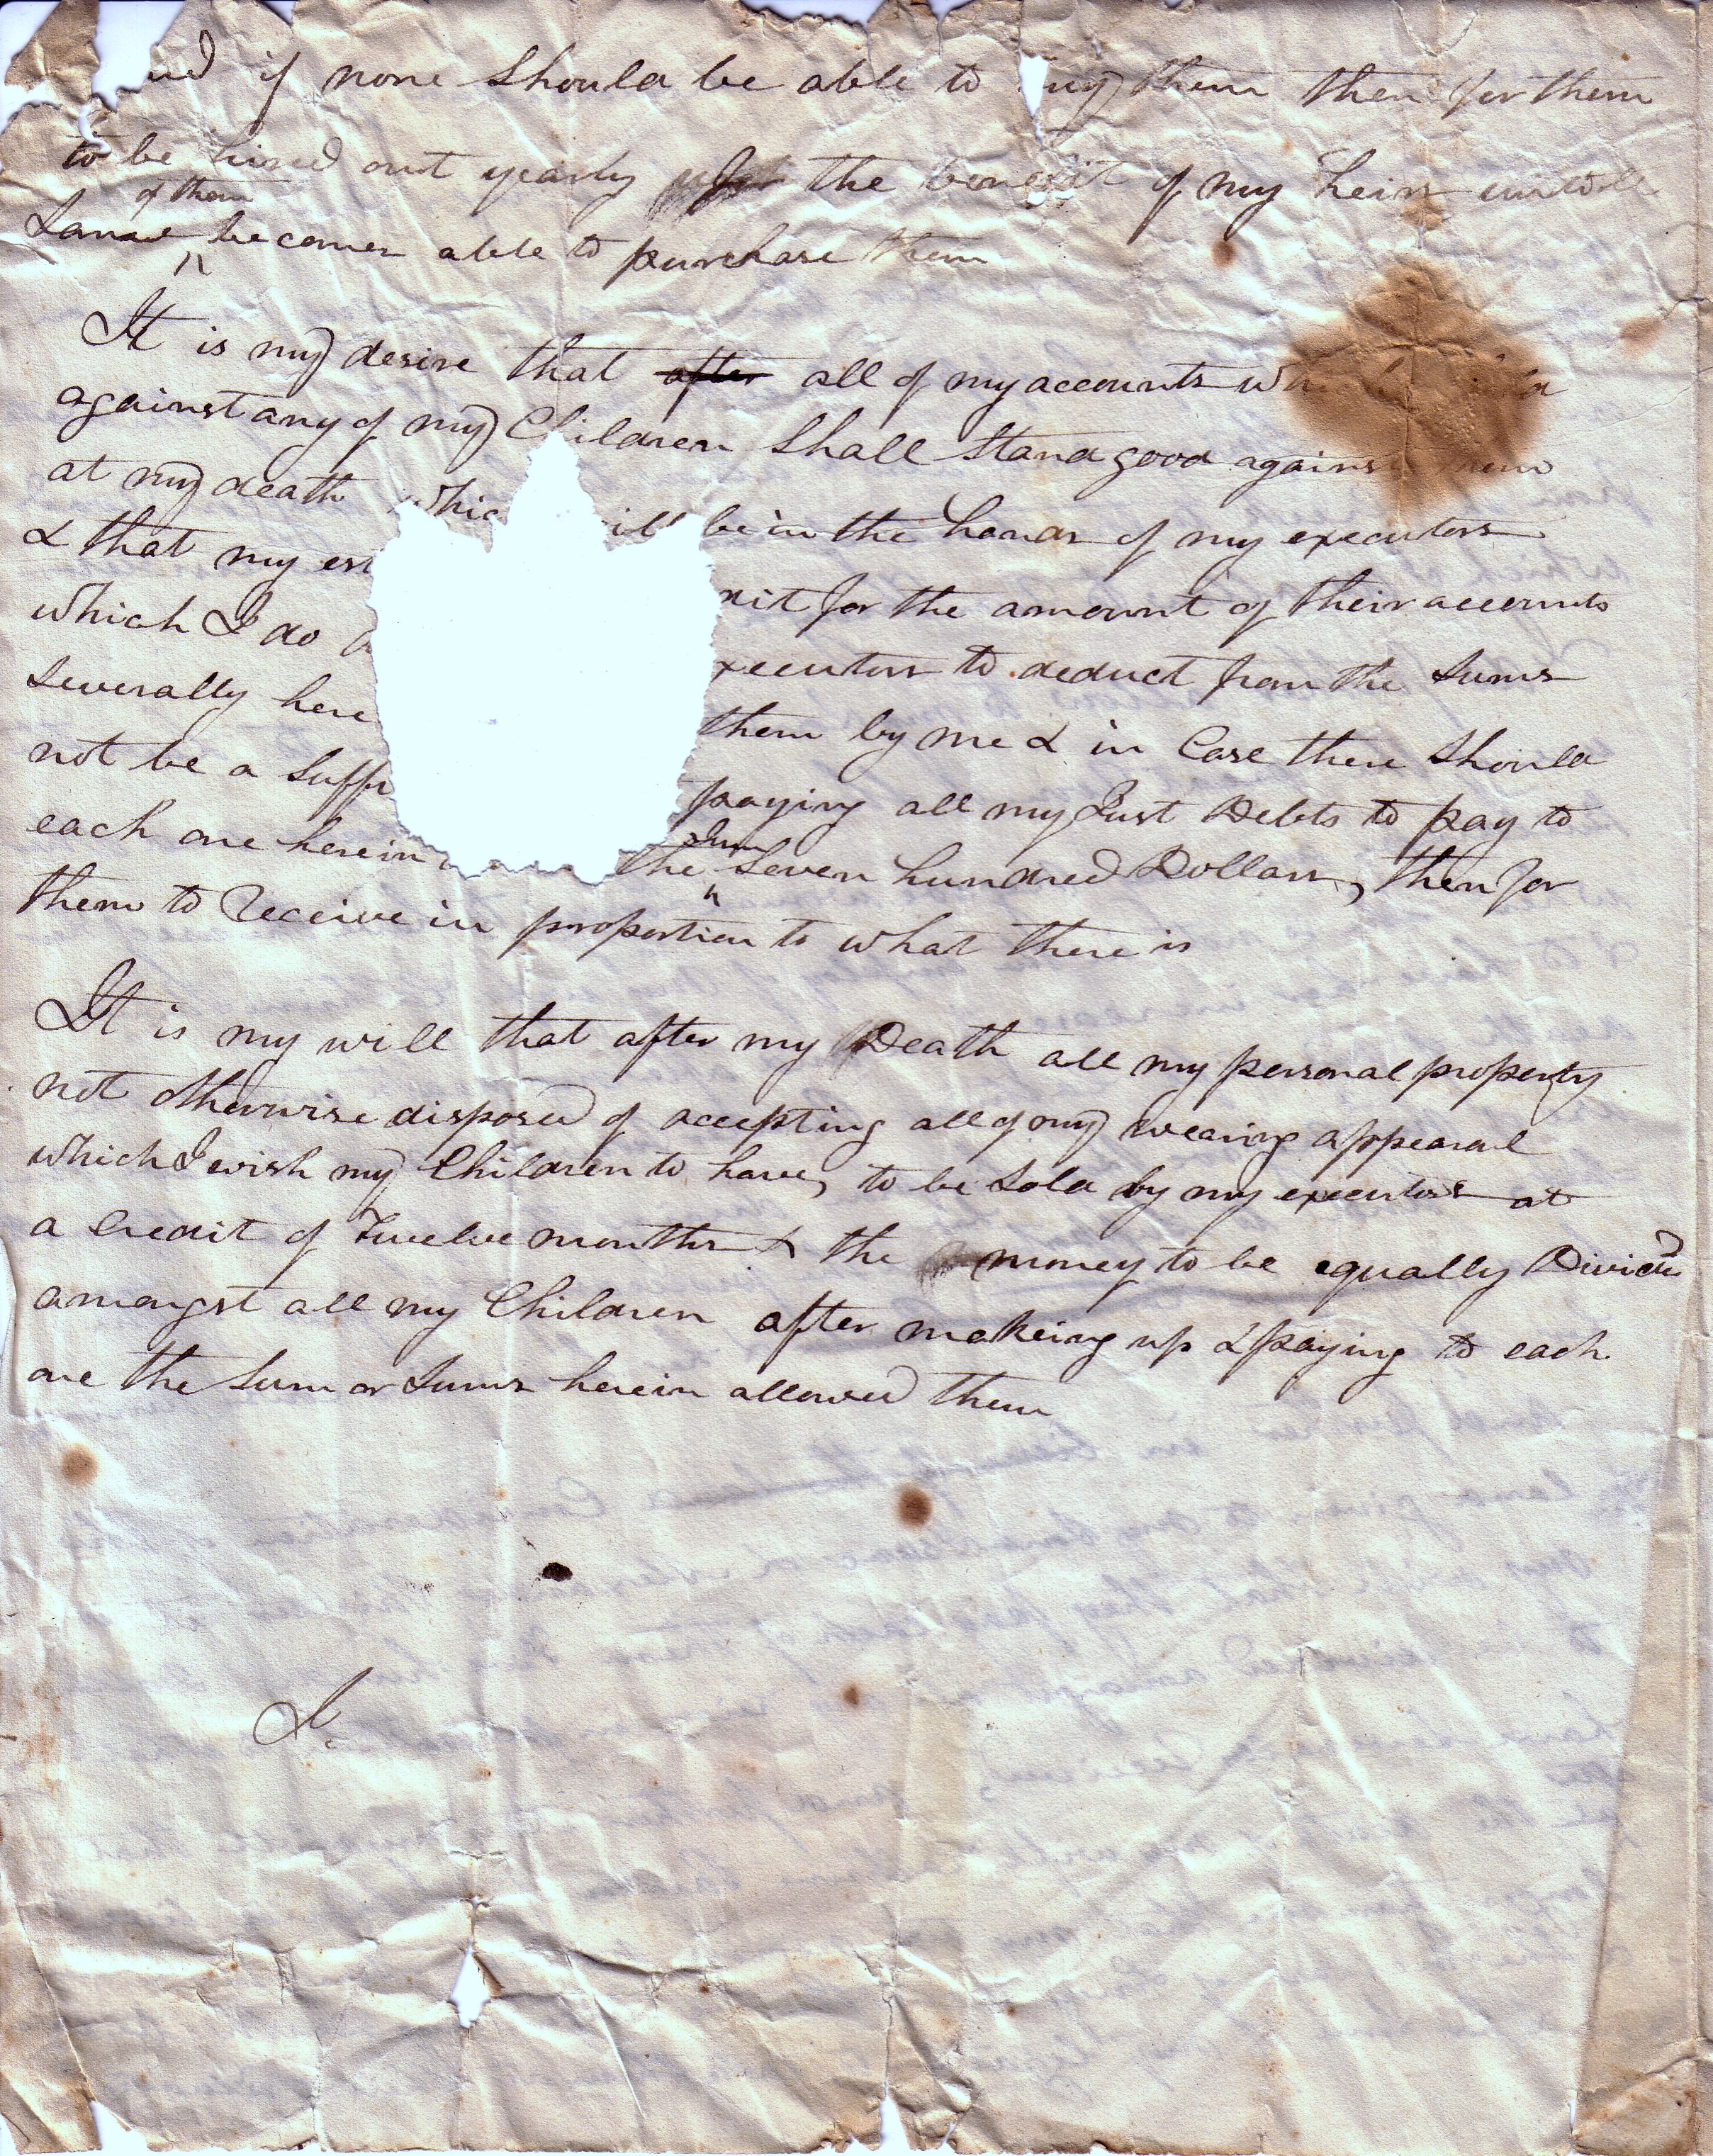 if none Should be able to them then for them
to be hired out yearly for the benefit of my heirs untill
of them
Some becomes able to purchase them
It is my desire that after all of my accounts
against any of my Children Shall Stand good against
at my death will be in the hands of my executors
& that my for the amount of their accounts
which I do executors to deduct from the Sums
Severally here them by me & in Case there Should
not be a paying all my Just Debts to pay to
Sum
each one herein the Seven hundred Dollars, then for
them to Receive in proportion to what there is
It is my will that after my Death all my personal property
not otherwise disposed of accepting all of my wearing appearal
which I wish my Children to have, to be Sold by my executors at
a Credit of Twelve months & the money to be equally Divided
amongst all my Children after makeing up & paying to each
one the Sum or Sums herein allowed them
I